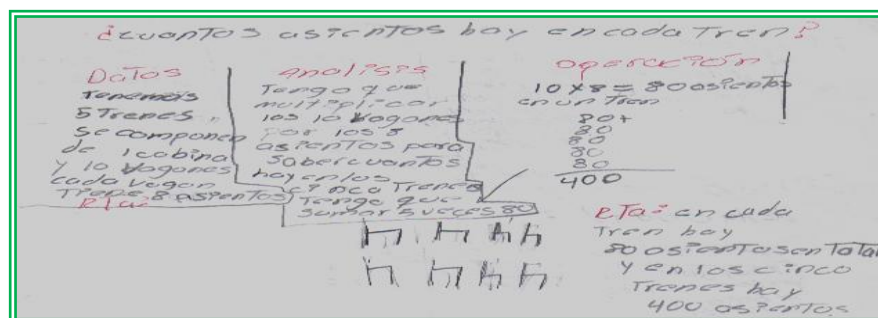 ¿cuantos asientos hay en cada Tren?
Datos
Tenemos
5 Trenes,
se componen
de 1 cabina
y 10 vagones
cada vagon
Tiene 8 asientos
RTa:
Analisis
Tengo que
multiplicar
los 10 vagones
por los 8
asientos para
saber cuantos
hay en los
cinco Trenes
Tengo que
sumar 5 veces 80
operación
10 x 8 = 80 asientos
en un Tren
80+
80
80
80
80
400
RTa: en cada
Tren hay
80 asientos en Total
y en los cinco
Trenes hay
400 asientos